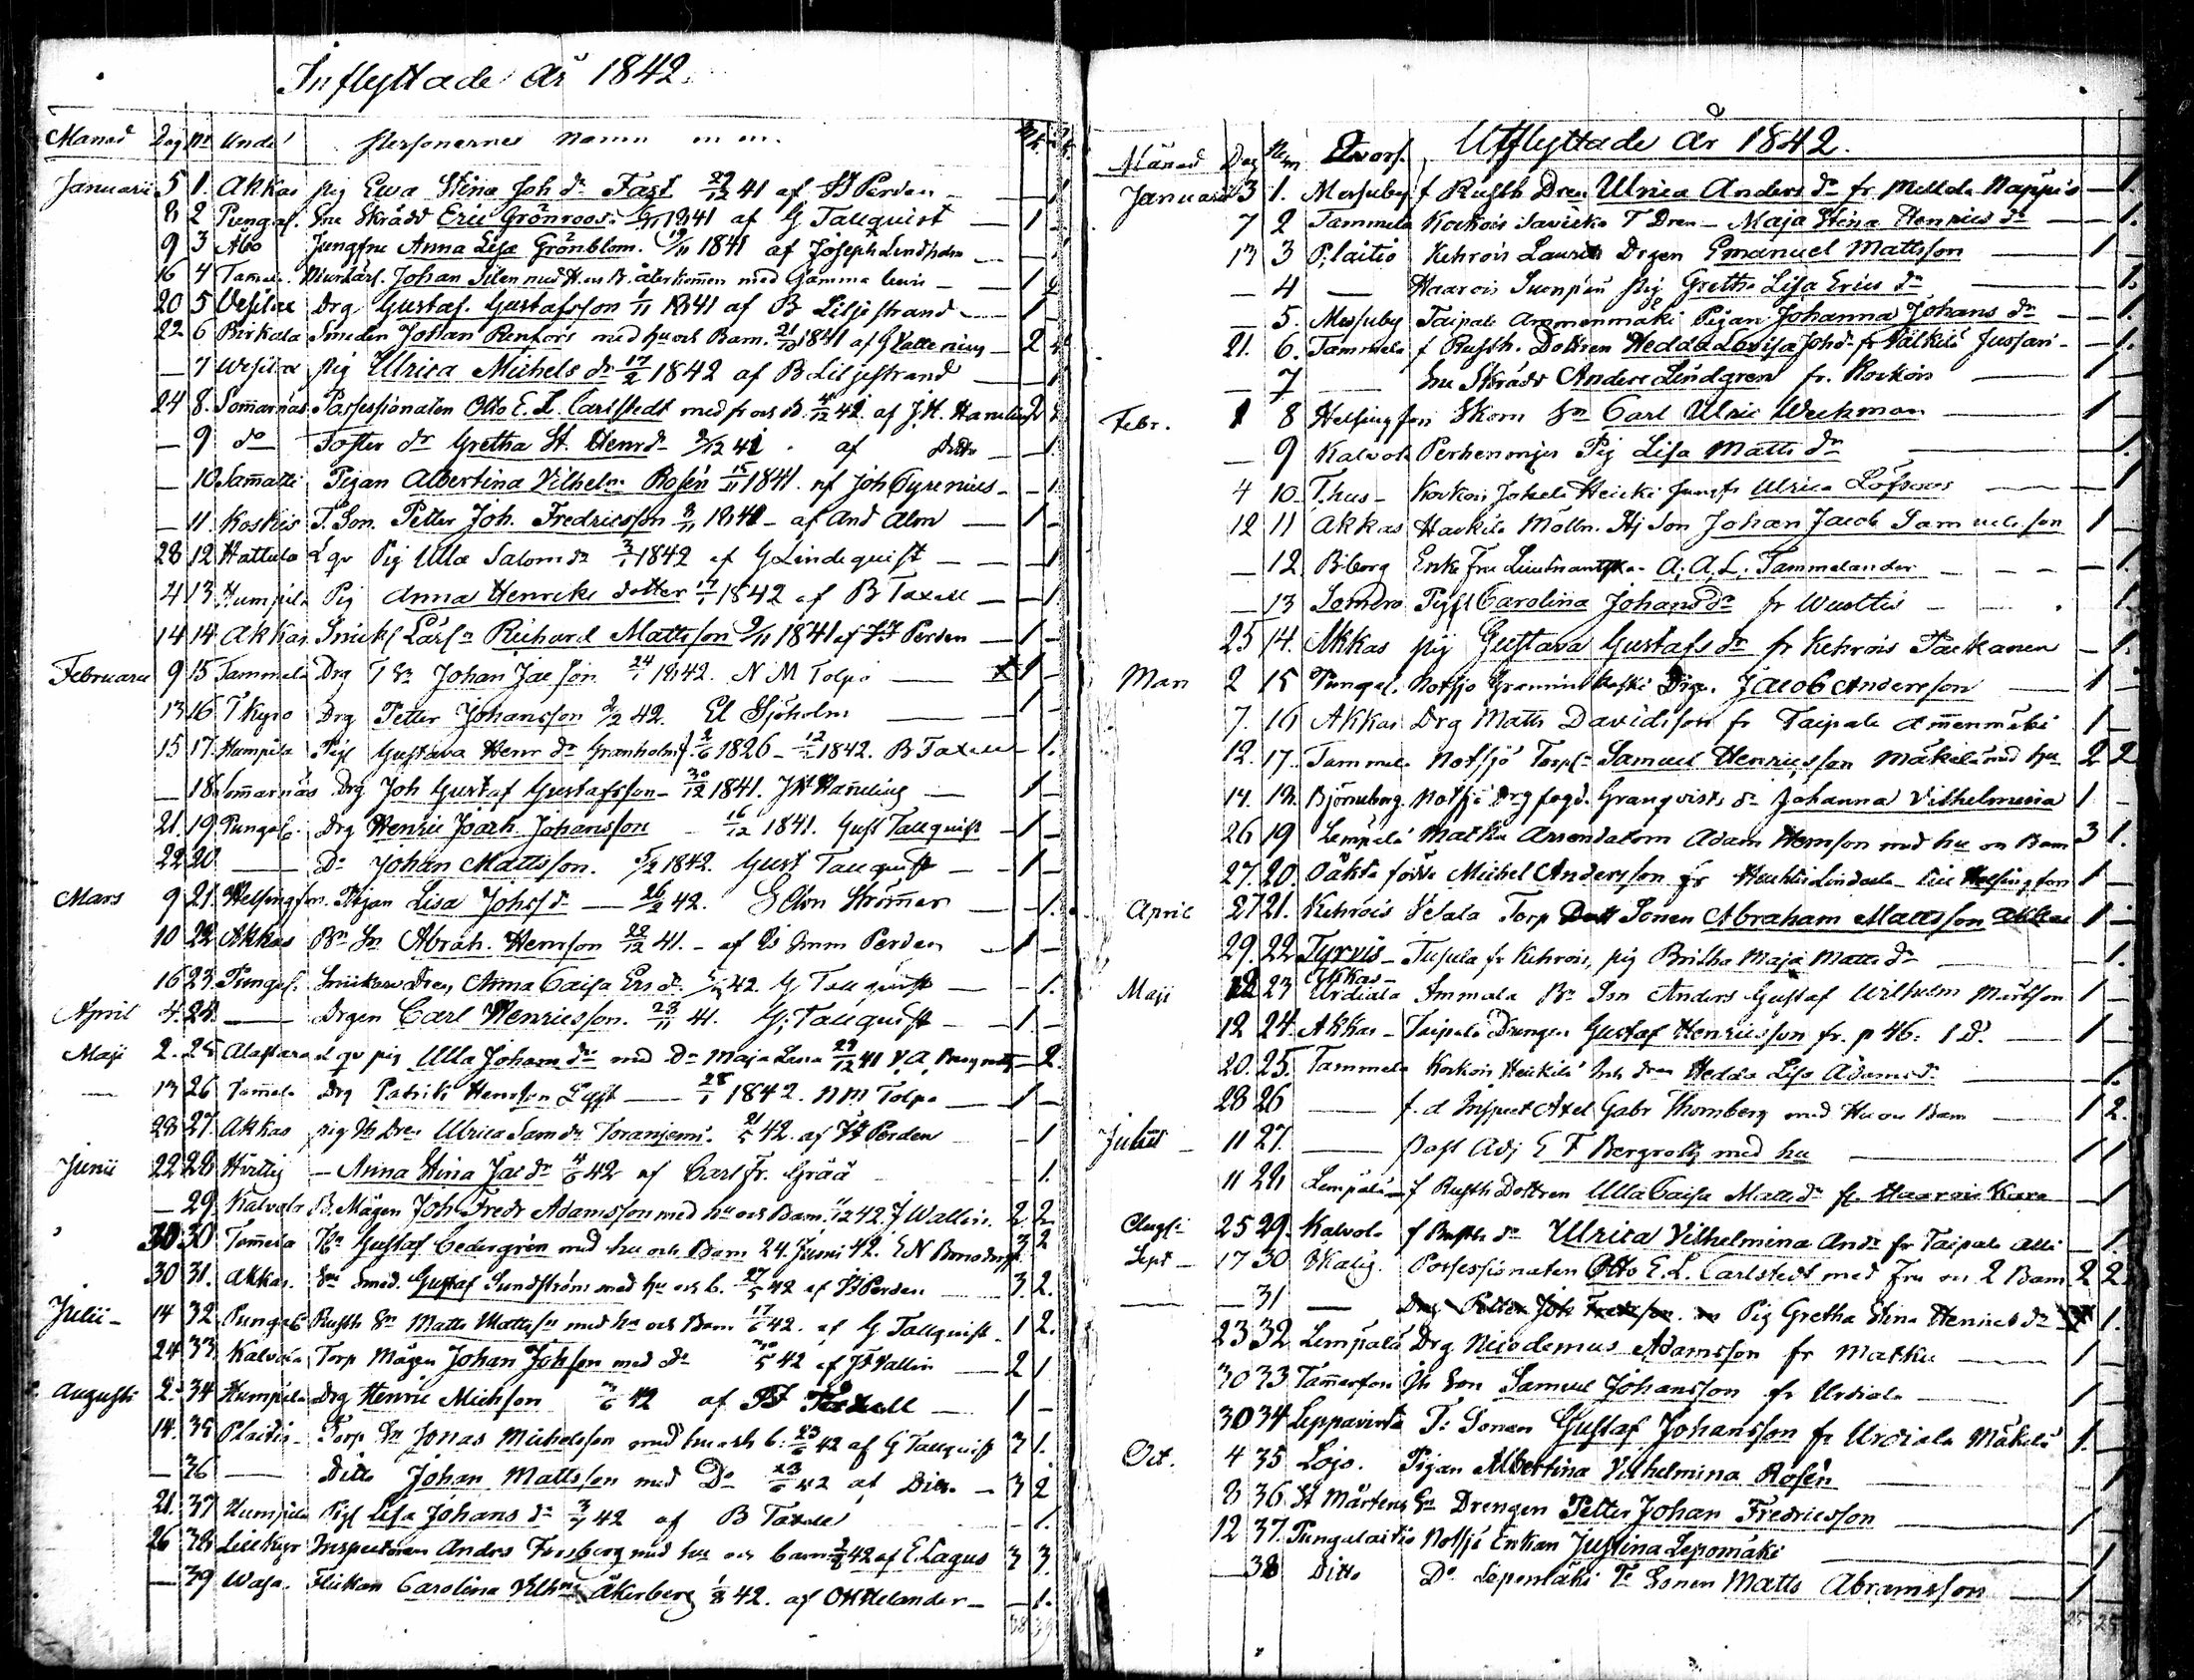 Inflyttade år 1842.
Månad Dag No Und. Personernes Namn m m. M.k. Q.k.
Januarii 5 1. Akkas pig Ewa Stina Joh dr Fast 29/12 41 af Is Perden — — 1
8 2 Pungal. Sne Skrädd Eric Grönroos 1841 af G Tallquist — 1 —
9 3 Åbo Jungfru Anna Lisa Grönblom. 19/11 1841 af Joseph Lindholm — — 1
16 4 Tamel. Johan Silen med Hu återkommen med samma bevis — — 1
20 5 Vesilax Drg Gustaf Gustafsson 1/11 1841 af B Liljestrand — 1 —
22 6 Birkala Smeden Johan Renfors med hu och Barn. 21/10 1841 af G Vallenius — 2
— 7 Wesilax pig Ulrica Michels dr 17/2 1842 af B Liljestrand — — 1
24 8. Somarnäs Possessionaten Otto E. L. Carlstedt med fr och B. 4/12 42. af J. H. Hameling 2
— 9 do Foster dr Gretha St. Henrd 9/12 41 af ditto — — 1.
— 10 Sammatti Pigan Albertina Vilhelm. Rosén 15/11 1841. af Joh Cyrenius — — 1.
— 11 Koskis T. Son. Petter Joh. Fredricsson 8/11 1841 — af And Alm — 1 —
28 12 Hattula L qv Pig Ulla Salom dr 3/1 1842 af G Lindequist — — — 1
4 13 Humpila Pig Anna Henriks dotter 17/1 1842 af B Taxell — — 1
14 14 Akkas Snick Lärl. Richard Mattsson 9/11 1841 af Is Perden — 1 —
Februarii 9 15 Tammela Drg T Sn Johan Jac son 24/1 1842. N M Tolpo — x 1 —
13 16 T Kyro Drg Petter Johansson 2/2 42. El Sjöholm — 1 —
15 17. Humpila Pig Gustava Henr dr Granholm f. 2/6 1826 — 12/2 1842. B Taxell — 1.
— 18 Somarnäs Drg Joh Gustaf Gustafsson — 30/12 1841. J H Hameling — 1 —
21. 19. Pungal. Drg Henric Joach. Johansson 16/12 1841. Gust Tallquist — 1 —
22 20 — Do Johan Mattsson. 5/2 1842. Gust Tallquist — 1 —
Mars 9 21. Helsingfors. Pigan Lisa Johs dr — 26/2 42. G Elon Strömer — — 1.
10 22 Akkas Bn Sn Abrah. Henrson 22/12 41. — af Is Imm Perden — 1 —
16 23. Pungal. Snickare Dren, Anna Caisa Ers dr 42. G Tallquist — — 1.
April 4. 24. — Drgen Carl Henricsson. 23/11 41. G. Tallquist — — 1 —
Maji 2. 25 Alastaro L qv pig Ulla Johans dr med Dr Maja Lena 29/12 41 — 2.
— 13 26 Tamela Drg Patrik Henrson Lust — 28/1 1842. N M Tolpo — 1 —
28 27. Akkas pig Dren Ulrica Sam dr Toranjemi 21/5 42. af Is Perden — 1
Junii 22 28 Hvittis — Anna Stina Jac dr 4/6 42 af Carl Fr. Grää — 1.
— 29. Kalvola B. Mågen Joh Fredr Adamsson med hu och Barn. 42. J Wallin. 2. 2.
30 30 Tamela Gustaf Cedergrén med hu och Barn 24. Junii 42. 3 2
30 31. Akkas. Sne smed. Gustaf Sundström med hu och b. 27/5 42 af Is Perden — 3. 2.
Julii — 14 32. Pungal Rusth Sn Matts Mattsson med hu och Barn 17/6 42. af G Tallquist. 1 2.
24 33. Kalvola Torp Mågen Johan Johsson med dr 30/5 42 af J Wallin — 2 1
Augusti 2. 34 Humpila Drg Henric Michson 3/6 42 af B Taxell — 1 —
14. 35 Plaitis — Torp Sn Jonas Michelsson med hu och b. 23/6 42 af G Tallquist 3 1.
— 36 — Ditto Johan Mattsson med Do 23/6 42 af Ditto — 3 2
21. 37 Humpila Pig Lisa Johans dr 3/7 42 af B Taxell — 1.
26 38 Liekkyr Inspectoren Andrs Forsberg med hu och barn 42 af E. Lagus 3 3.
— 39 Wasa. Flickan Carolina Vilhma Åkerberg 1/8 42. af O H Helander — — 1.
38 39
Utflyttade år 1842.
Månad Dag Nom Hvart.
Januarii 3 1. Messuby f Rusth Dren Ulrica Anders dr fr Mellola Nappis — 1.
7 2 Tammela Korkois Savicko T Dren — Maja Stina Henrics dr — — 1.
13 3 P;laitio Kehrois Lauris Drgen Emanuel Mattsson — 1 —
— 4 — Haarois Suonpää pig Gretha Lisa Erics dr — 1.
— 5. Messuby Taipale Ammenmäki Pigan Johanna Johans dr — — 1.
21. 6. Tammela f Rusth. Dottren Hedda Lovisa Johdr fr Välkilä Jussari — — 1.
— 7 — Sne Skrädd Anders Lindgren fr. Korkois — 1 —
Febr. 1 8 Helsingfors Skom Sn Carl Ulric Weckman — 1 —
— 9 Kalvola Perhenonjus Pig Lisa Matts dr — — 1.
4 10. T.hus — Korkois Jokela Heicki Jungfr Ulrica Löfroos — — 1
12 11 Akkas Havkila Mölln. Hj Son Johan Jacob Samuelsson 1 —
— 12. B:borg Enke Fru Lieutnantskan A. A. L. Tammelander — — — 1.
— 13 Somero Pig Carolina Johans dr fr Wusltis — — . 1.
25 14. Akkas pig Gustava Gustafs dr fr Kehrois Paekanen — 1.
Mars 2 15 Pungal. Notsjö Grannin koski Drgn. Jacob Andersson — 1 —
7. 16 Akkas Drg Matts Davidsson fr Taipale Ammenmäki 1 —
12. 17. Tammela Notsjö Torp Samuel Henricsson Mäkelä med hu 2 2
14. 18. Björneborg. Notsjö Drgfogd. Granqvists dr Johanna Vilhelmina 1 —
26 19 Lempälä Matku Arrendatorn Adam Hemson med hu och Barn 3 1.
27. 20. Oäkta födde Michel Andersson fr Huchtis Lindula till Helsingfors 1 —
April 27 21. Kehrois Velala Torp Sonen Abraham Mattsson Akkas 1 —
29. 22 Tyrvis — Tupula fr Kehrois, pig Britha Maja Matts dr — 1.
Akkas —
Maji 12 23 Urdiala Immala Bn Son Anders Gustaf Wilhelm Mårtson 1 —
12 24. Akkas — Taipale Drengen Gustaf Henricsson fr. p 46: 1 D. — 1 —
20. 25. Tammela Korkois Heikilä Inh dren Hedda Lisa Adams dr — 1.
28 26 — f. d Inspect Axel Gabr Thomberg med Hu och Barn — 1 2.
Julii — 11 27. — Past Adj E F Bergroth med hu — 1 1
11 28 Lempälä — f Rusth Dottren Ulla Caisa Matts dr fr Haarois Kara — 1
Augsti 25 29. Kalvola f Rusth dr Ulrica Vilhelmina Andr fr Taipale Alli — 1.
Sept — 17 30 Possessionaten Otto E. L. Carlstedt med Fru och 2 Barn 2 2.
— — 31 — Drg Petter Joh Fredrson. Pig Gretha Stina Henrics dr 1.
23 32. Lempälä Drg Nicodemus Adamsson fr Matku — 1 —
30 33 Tammerfors Jh Son Samuel Johansson fr Urdiala — 1 —
30 34 Leppavirta T. Sonen Gustaf Johansson fr Urdiala Mäkelä 1. —
Oct. 4 35 Lojo. Pigan Albertina Vilhelmina Rosén — 1
8 36 St Mårtens Sn Drengen Petter Johan Fredricsson — 1 —
12 37. Pungalaitio Notsjö Enkan Justina Lepomäki — 1
— 38 Ditto Do Lepomäki T. Sonen Matts Abramsson — 1 —
25 25